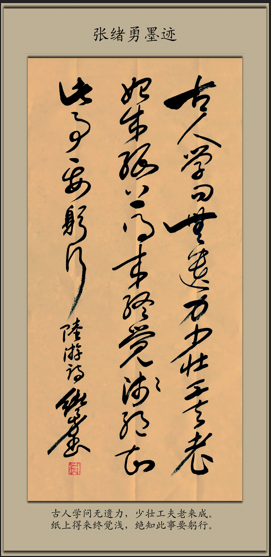 张绪勇墨迹
古人学问無遺力少壮工夫老
始成纸上得来终觉浅绝知
此事要躬行
陸游詩
古人学问无遗力，少壮工夫老来成。
纸上得来终觉浅，绝知此事要躬行。